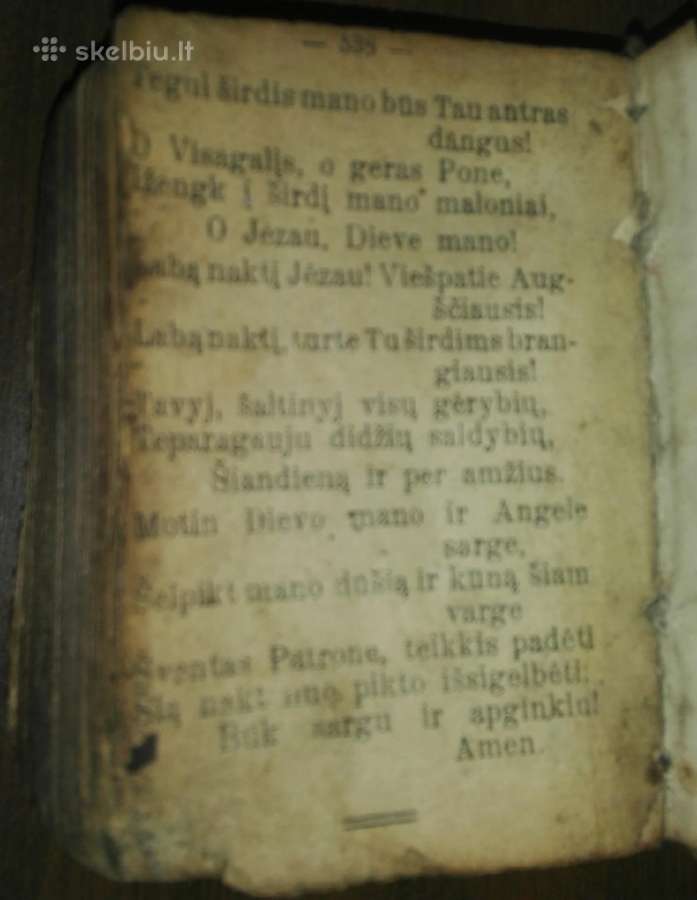 skelbiu.lt
— 538 —
Tegul širdis mano būs Tau antras
dangus!
O Visagalįs, o geras Pone,
Įžengk į širdį mano maloniai,
O Jėzau, Dieve mano!
Labą naktį Jėzau! Viešpatie Aug-
ščiausis!
Labą naktį, turte Tu širdims bran-
giausis!
Tavyj, šaltinyj visų gėrybių,
Teparagauju didžių saldybių,
Šiandieną ir per amžius.
Motin Dievo mano ir Angele
sarge,
Šelpikt mano dūšią ir kūną šiam
varge
Šventas Patrone, teikkis padėti
Šią nakt nuo pikto išsigelbėti;
Būk sargu ir apginkiu!
Amen.